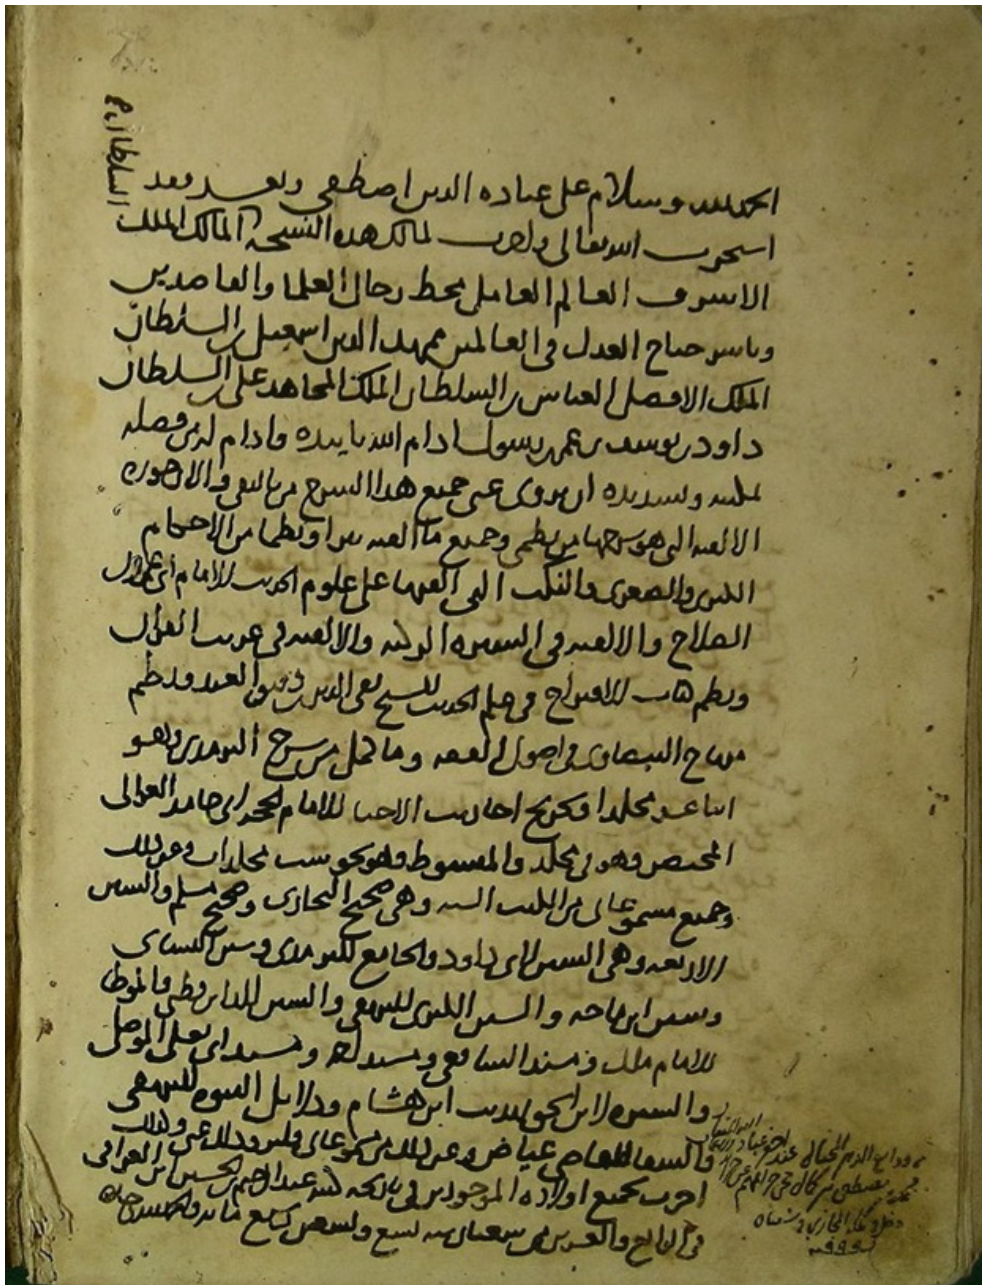 الحمد لله وسلام على عباده الذين اصطفى وبعد فقد
استخرت الله تعالى واجزت لمالك هذه النسخة المالك الملك
السلطان
الاشرف العالم العامل محط رحال العلما والقاصدين
وناشر جناح العدل في العالمين ممهد الدين اسمعيل بن السلطان
الملك الافضل العباس بن السلطان الملك المجاهد على بن السلطان
داود بن يوسف بن عمر بن رسول ادام الله تاييده وادام له من فضله
وتسديده ان يروى عنى جميع هذا الشرح من تاليفى والارجوزة
الالفية التى هو شرحها من نظمى وجميع ما الفته نثرا ونظما من الاحكام
الكبرى والصغرى والنكت التى الفتها على علوم الحديث للامام ابى عمرو بن
الصلاح والالفية فى السيرة الزكية والالفية فى غريب القران
ونظم كتاب الاقتراح فى علم الحديث للشيخ تقى الدين بن دقيق العيد ونظم
منهاج البيضاوى فى اصول الفقه وما كمل من شرح الترمذى وهو
اثنا عشر مجلدا وتخريج احاديث الاحيا للامام ابى حامد الغزالى
المختصر وهو فى مجلد والمبسوط وهو نحو ست مجلدات وغير ذلك
وجميع مسموعاتى من الكتب الستة وهى صحيح البخارى وصحيح مسلم والسنن
الاربعة وهى السنن لابى داود والجامع للترمذى وسنن النساى
وسنن ابن ماجه والسنن الكبرى للبيهقى والسنن للدارقطنى والموطا
للامام ملك ومسند الشافعى ومسند احمد ومسند ابى يعلى الموصلى
والسيرة لابن اسحق تهذيب ابن هشام ودلايل النبوة للبيهقى
والشفا للقاضى عياض وغير ذلك من مسموعاتى وكذلك
اجزت لجميع اولاده الموجودين فى تاريخه كتبه عبد الرحيم بن الحسين بن العراقى
فى الرابع والعشرين من شعبان سنة تسع وتسعين وسبع مائة